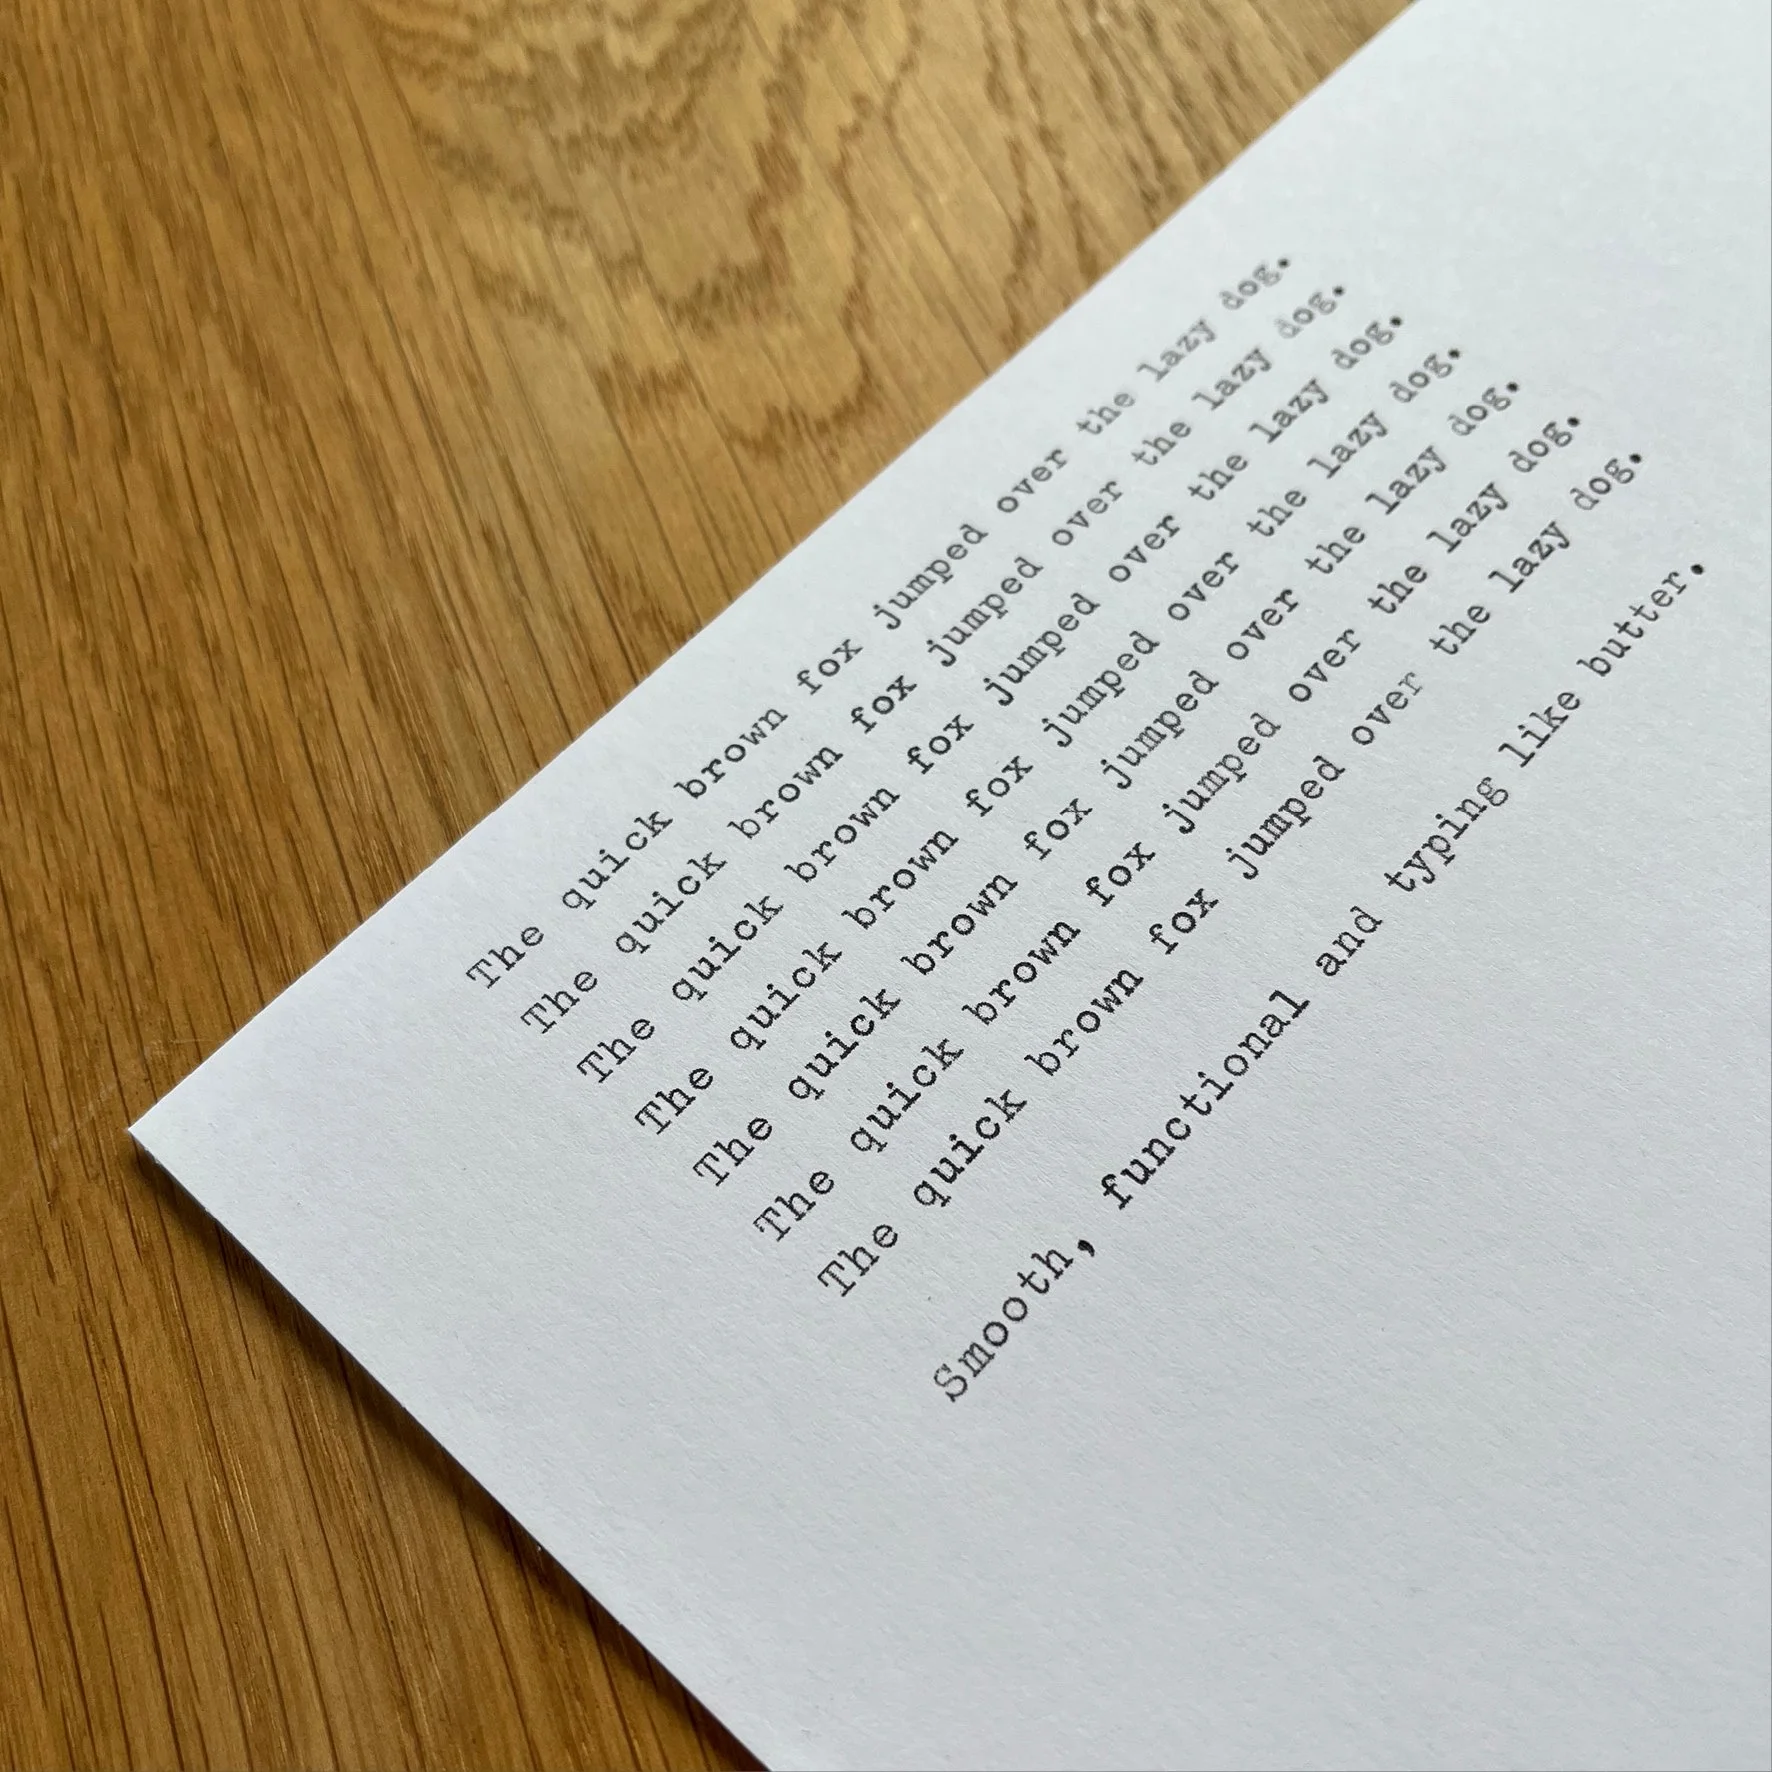 The quick brown fox jumped over the lazy dog.
The quick brown fox jumped over the lazy dog.
The quick brown fox jumped over the lazy dog.
The quick brown fox jumped over the lazy dog.
The quick brown fox jumped over the lazy dog.
The quick brown fox jumped over the lazy dog.
The quick brown fox jumped over the lazy dog.
Smooth, functional and typing like butter.